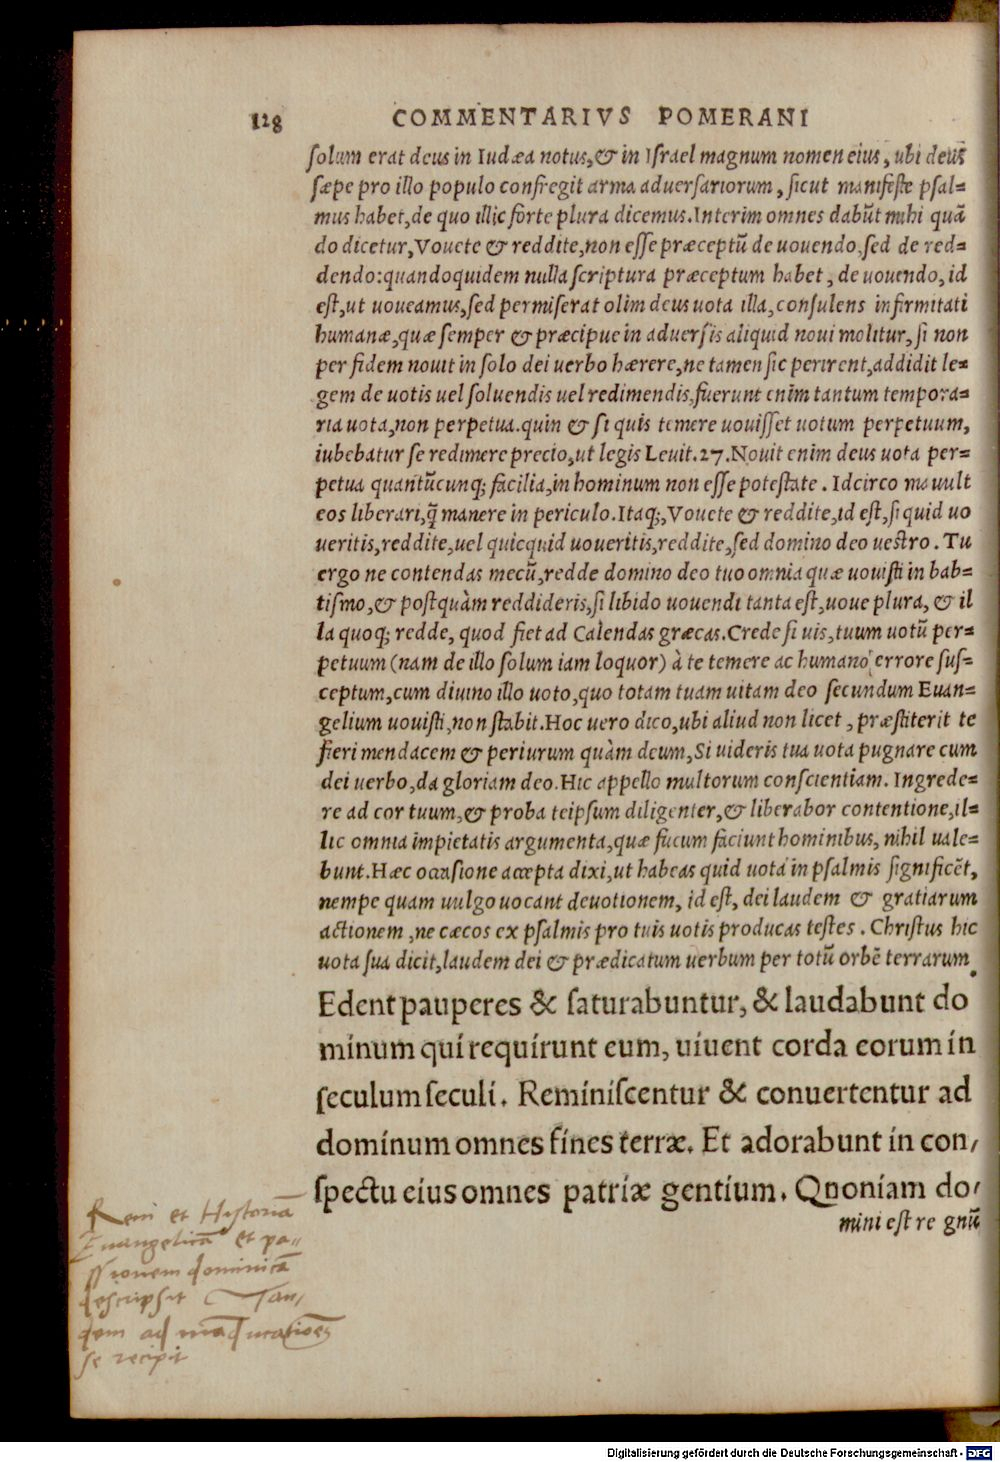 128 COMMENTARIVS POMERANI
ſolum erat deus in Iudæa notus, & in Iſrael magnum nomen eius, ubi deus
ſæpe pro illo populo confregit arma aduerſariorum, ſicut manifeſte pſal=
mus habet, de quo illic forte plura dicemus. Interim omnes dabūt mihi quā
do dicetur, Vouete & reddite, non eſſe præceptū de uouendo, ſed de red=
dendo: quandoquidem nulla ſcriptura præceptum habet, de uouendo, id
eſt, ut uoueamus, ſed permiſerat olim deus uota illa, conſulens infirmitati
humanæ, quæ ſemper & præcipue in aduerſis aliquid noui molitur, ſi non
per fidem nouit in ſolo dei uerbo hærere, ne tamen ſic perirent, addidit le=
gem de uotis uel ſoluendis uel redimendis, fuerunt enim tantum tempora=
ria uota, non perpetua. quin & ſi quis temere uouiſſet uotum perpetuum,
iubebatur ſe redimere precio, ut legis Leuit. 27. Nouit enim deus uota per=
petua quantūcunq; facilia, in hominum non eſſe poteſtate. Idcirco mauult
eos liberari, q̃ manere in periculo. Itaq;, Vouete & reddite, id eſt, ſi quid uo
ueritis, reddite, uel quicquid uoueritis, reddite, ſed domino deo ueſtro. Tu
ergo ne contendas mecū, redde domino deo tuo omnia quæ uouiſti in bab=
tiſmo, & poſtquàm reddideris, ſi libido uouendi tanta eſt, uoue plura, & il
la quoq; redde, quod fiet ad Calendas græcas. Crede ſi uis, tuum uotū per=
petuum (nam de illo ſolum iam loquor) à te temere ac humano errore ſuſ=
ceptum, cum diuino illo uoto, quo totam tuam uitam deo ſecundum Euan=
gelium uouiſti, non ſtabit. Hoc uero dico, ubi aliud non licet, præſtiterit te
fieri mendacem & periurum quàm deum, Si uideris tua uota pugnare cum
dei uerbo, da gloriam deo. Hic appello multorum conſcientiam. Ingrede=
re ad cor tuum, & proba teipſum diligenter, & liberabor contentione, il=
lic omnia impietatis argumenta, quæ fucum faciunt hominibus, nihil uale=
bunt. Hæc occaſione accepta dixi, ut habeas quid uota in pſalmis ſignificēt,
nempe quam uulgo uocant deuotionem, id eſt, dei laudem & gratiarum
actionem, ne cæcos ex pſalmis pro tuis uotis producas teſtes. Chriſtus hic
uota ſua dicit, laudem dei & prædicatum uerbum per totū orbē terrarum.
Edent pauperes & ſaturabuntur, & laudabunt do
minum qui requirunt eum, uiuent corda eorum in
ſeculum ſeculi. Reminiſcentur & conuertentur ad
dominum omnes fines terræ. Et adorabunt in con/
ſpectu eius omnes patriæ gentium. Qnoniam do/
mini eſt re gnū
Rem et Hystoriā
Euangelicā et pa=
ssionem dominicā
descripsit Tan/
dem ad māducationes
se recipit
Digitalisierung gefördert durch die Deutsche Forschungsgemeinschaft - DFG